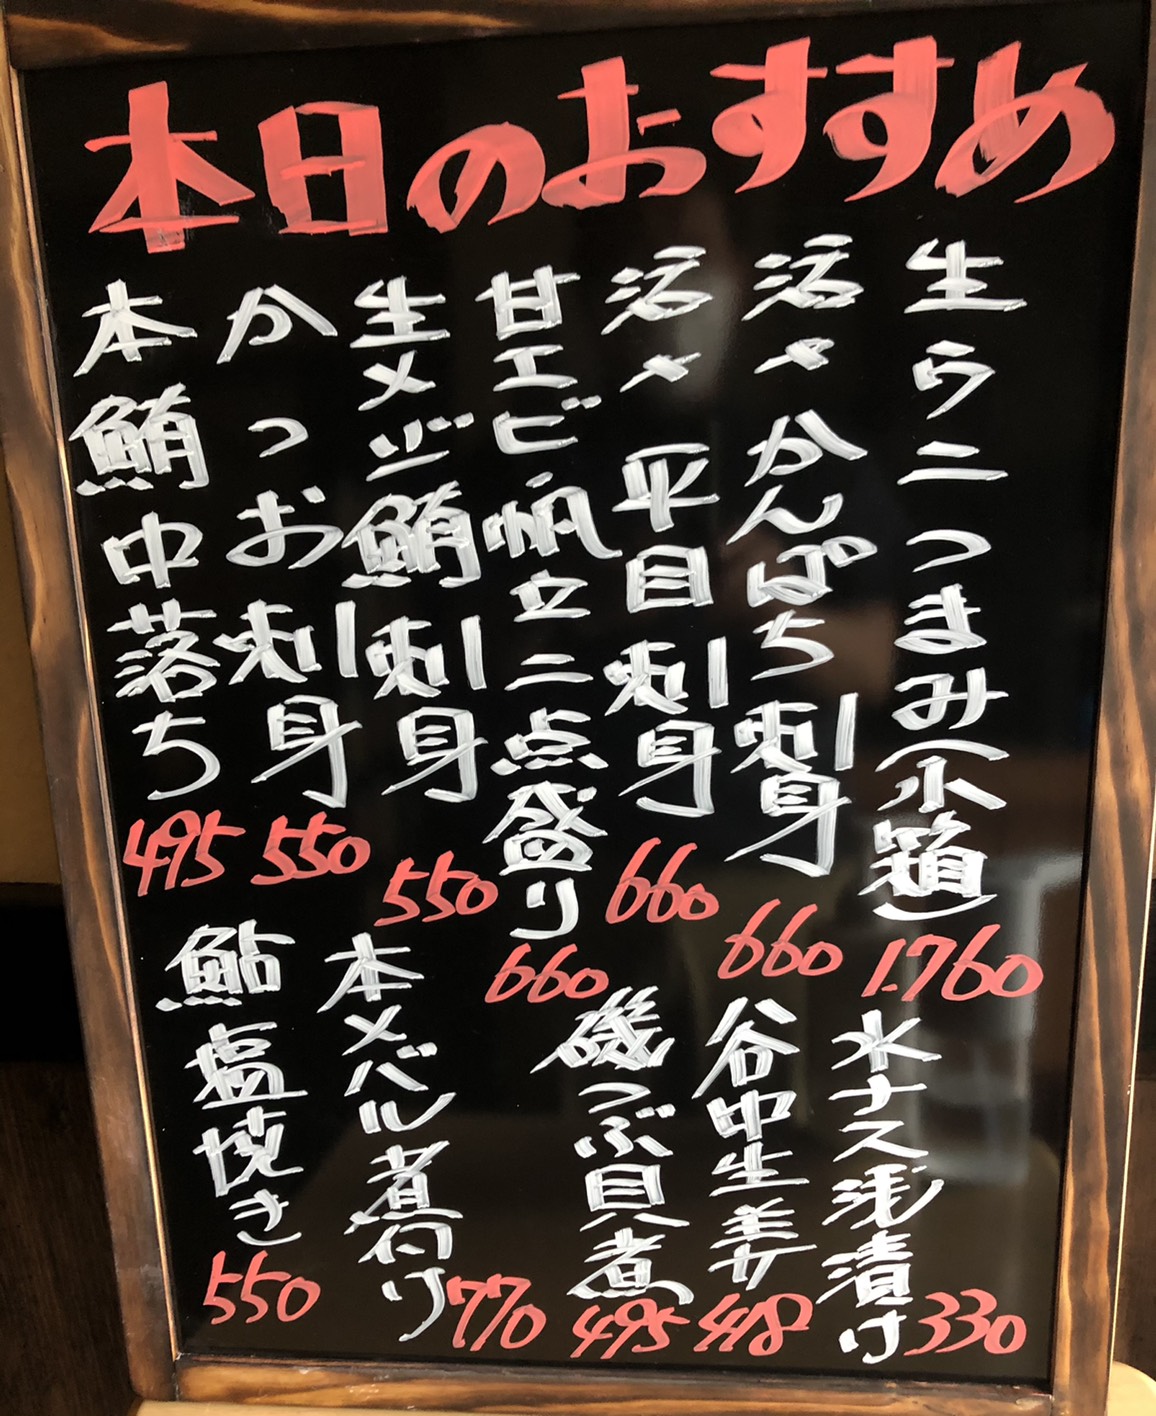 本日のおすすめ
生うニつまみ(小箱)
1.760
活〆かんぱち刺身
660
活〆平目刺身
660
甘エビ・帆立二点盛り
660
生メジ鮪刺身
550
かつお刺身
550
本鮪中落ち
495
水ナス浅漬け
330
谷中生姜
418
磯つぶ貝煮
495
本メバル煮付け
770
鮎塩焼き
550